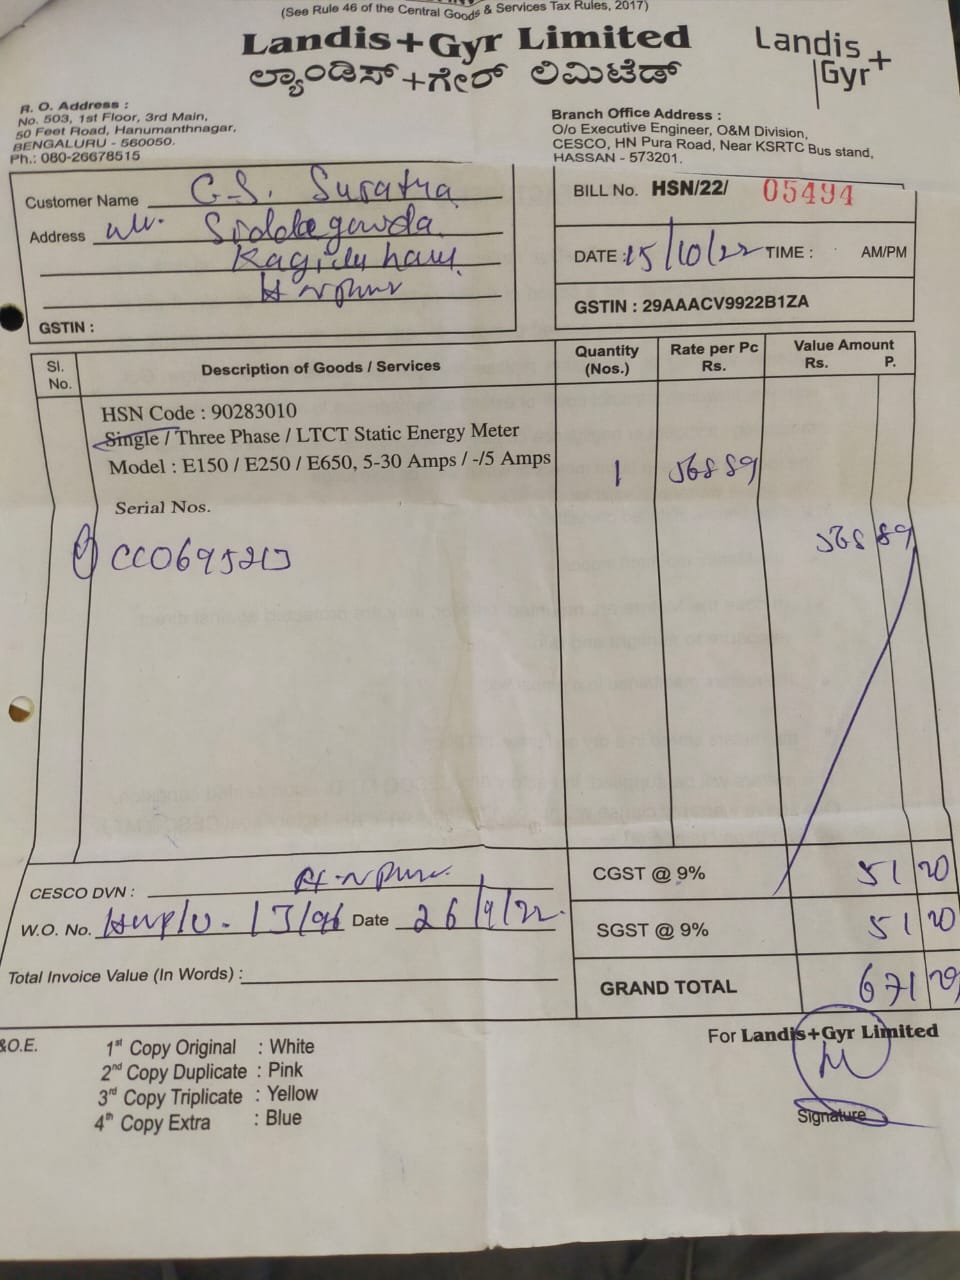 (See Rule 46 of the Central Goods & Services Tax Rules, 2017)
Landis+Gyr Limited
ಲ್ಯಾಂಡಿಸ್+ಗೇರ್ ಲಿಮಿಟೆಡ್
Landis+
Gyr
R. O. Address :
No. 503, 1st Floor, 3rd Main,
50 Feet Road, Hanumanthnagar,
BENGALURU - 560050.
Ph.: 080-26678515
Branch Office Address :
O/o Executive Engineer, O&M Division,
CESCO, HN Pura Road, Near KSRTC Bus stand,
HASSAN - 573201.
Customer Name
Address
GSTIN :
BILL No. HSN/22/ 05494
DATE : 15/10/22 TIME : AM/PM
GSTIN : 29AAACV9922B1ZA
Sl. No. Description of Goods / Services Quantity (Nos.) Rate per Pc Rs. Value Amount Rs. P.
HSN Code : 90283010
Single / Three Phase / LTCT Static Energy Meter
Model : E150 / E250 / E650, 5-30 Amps / -/5 Amps 1 568 89
Serial Nos.
568 89
CESCO DVN :
CGST @ 9% 51 20
W.O. No. Date 26/9/22
SGST @ 9% 51 20
Total Invoice Value (In Words) :
GRAND TOTAL 671 29
&O.E.
For Landis+Gyr Limited
1st Copy Original : White
2nd Copy Duplicate : Pink
3rd Copy Triplicate : Yellow
4th Copy Extra : Blue
Signature